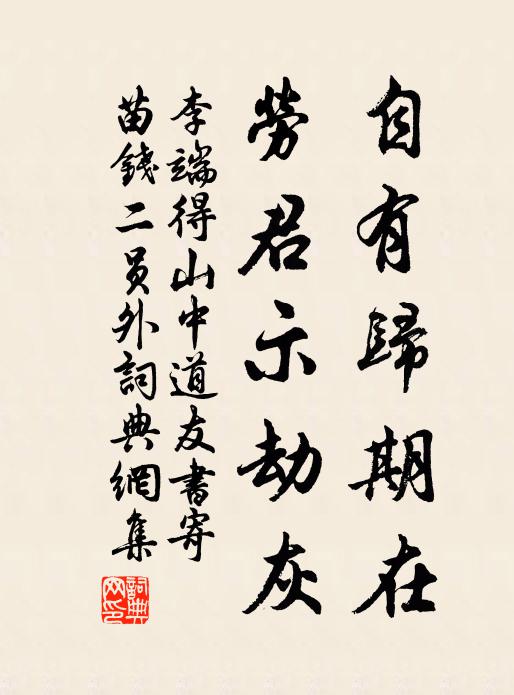 自有歸期在
勞君示劫灰
李端得山中道友書寄
苗錢二員外詞典網集
詞典網印